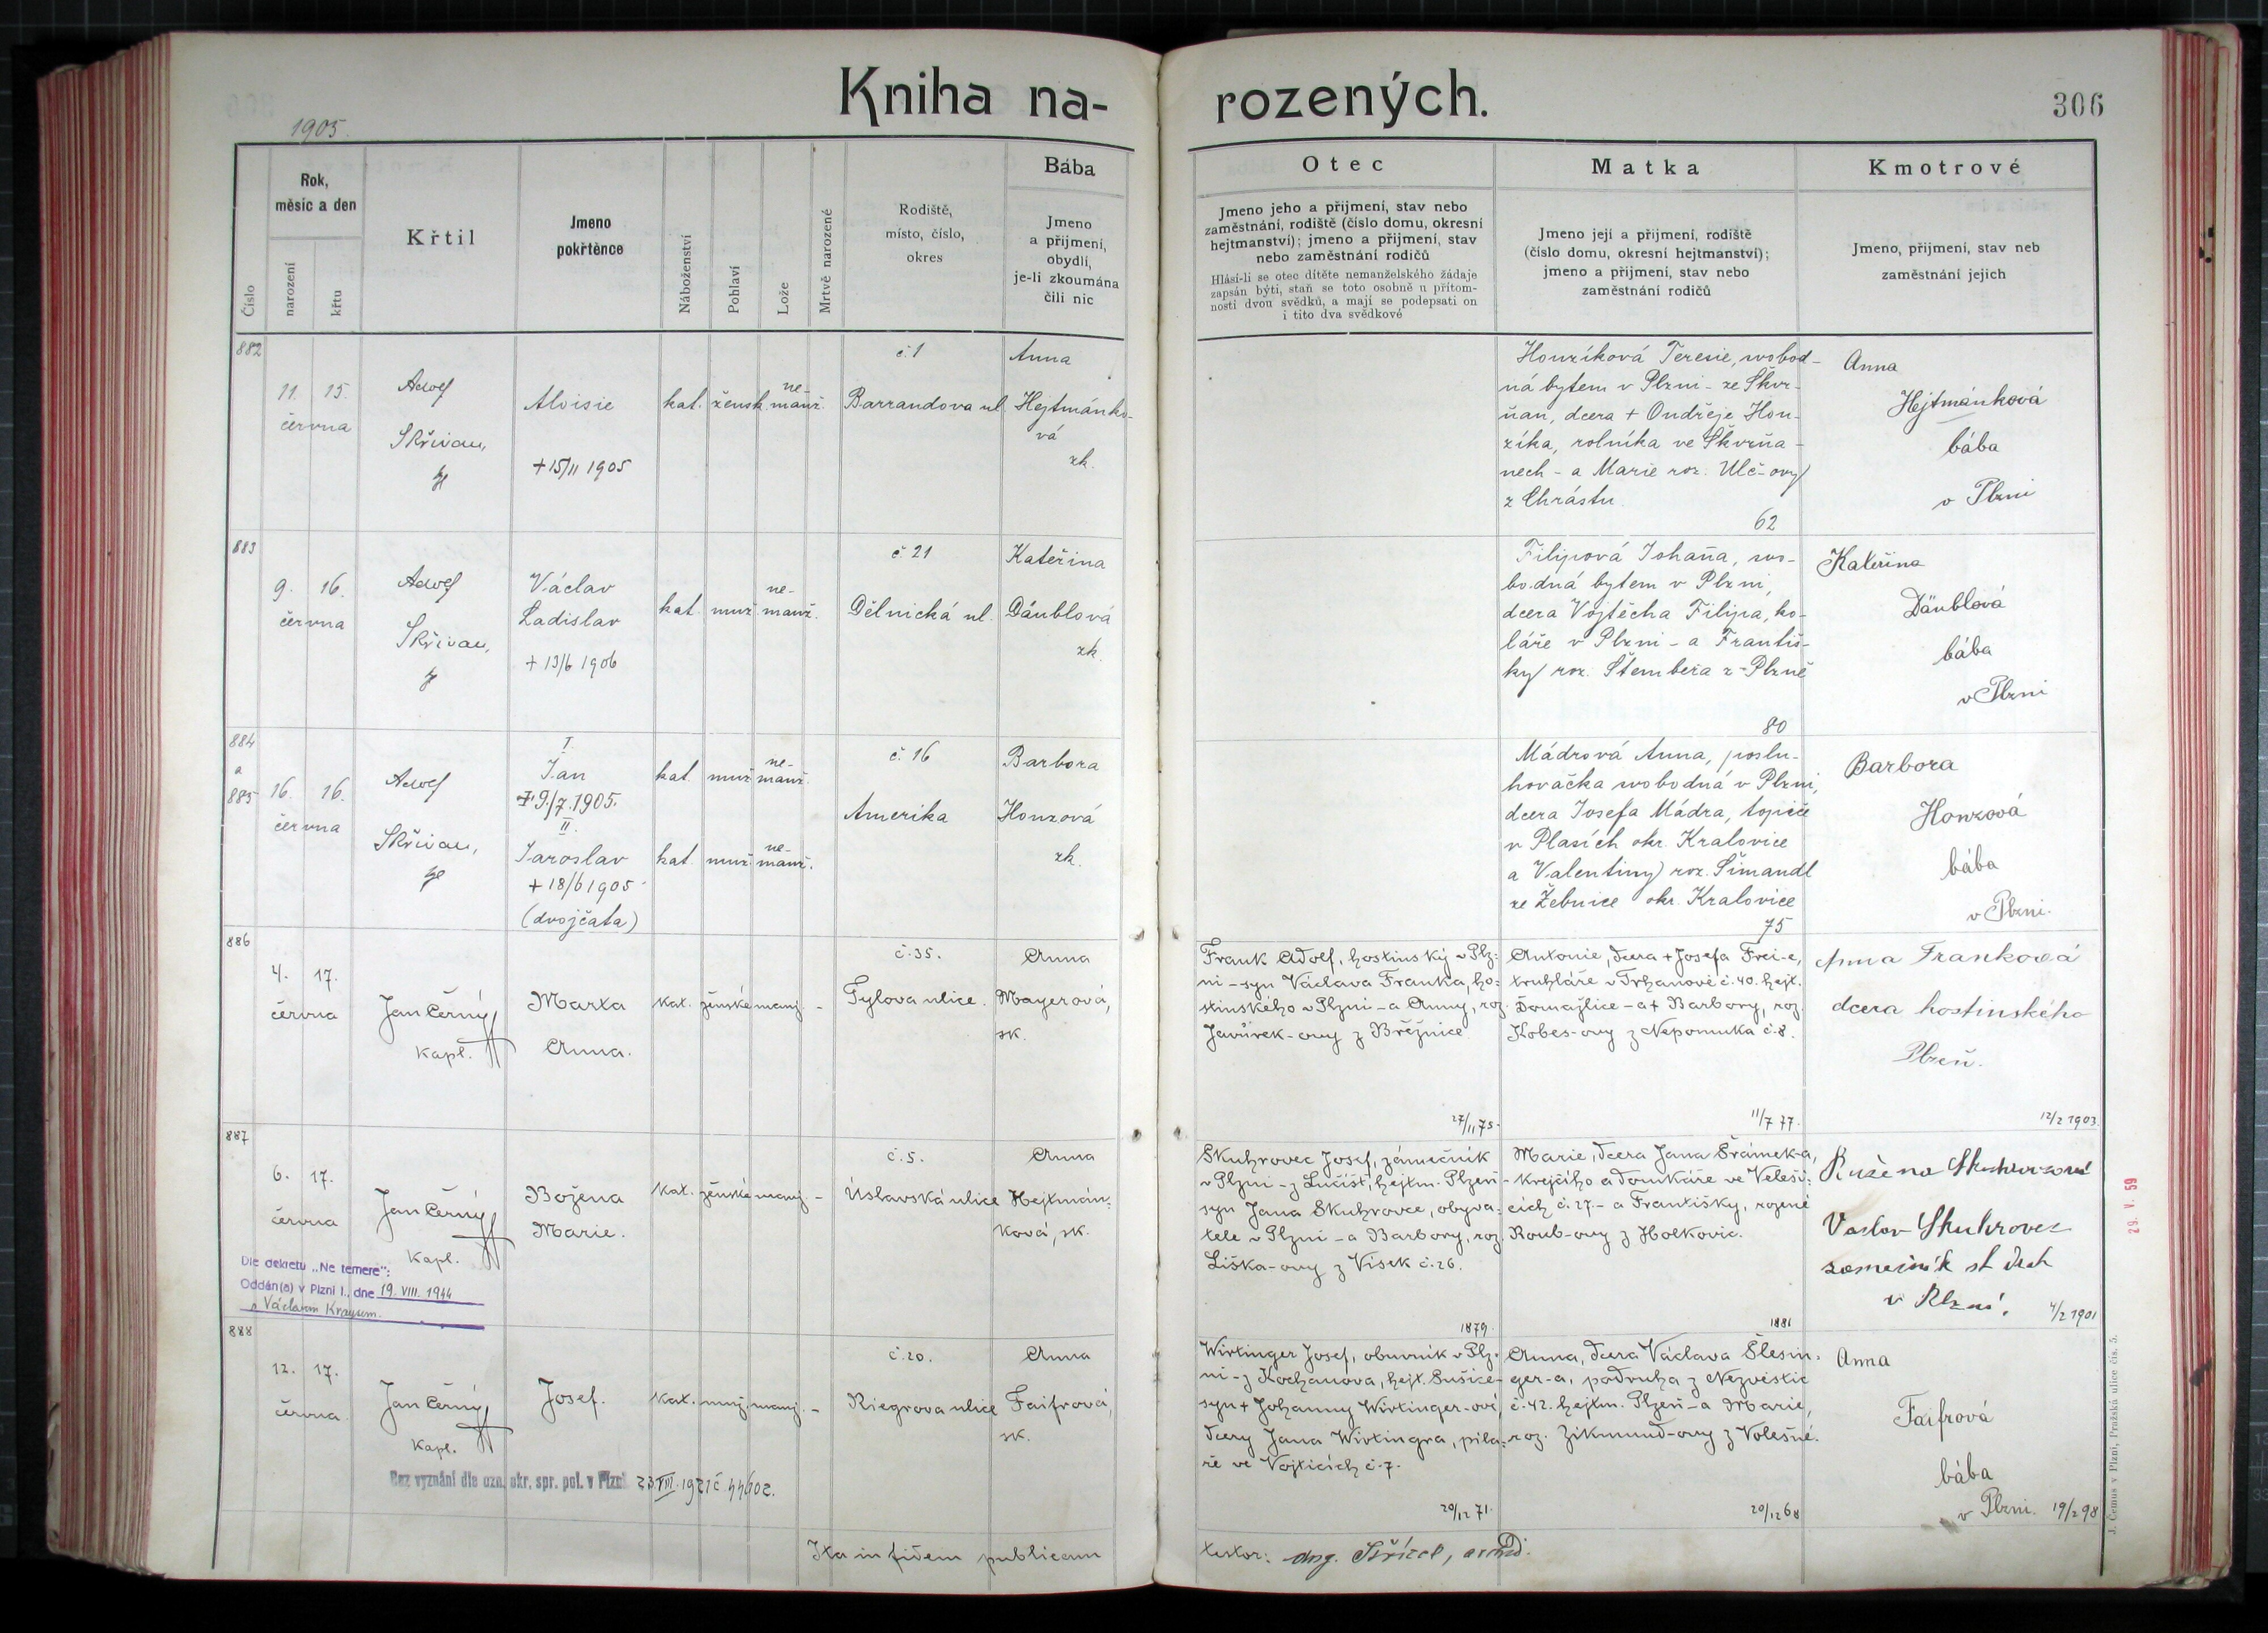 Kniha na-
rozených.
306
1905.
Číslo
Rok,
měsíc a den
narození
křtu
Křtil
Jmeno
pokřtěnce
Náboženství
Pohlaví
Lože
Mrtvě narozené
Rodiště,
místo, číslo,
okres
Bába
Jmeno
a přijmení,
obydlí,
je-li zkoumána
čili nic
Otec
Jmeno jeho a přijmení, stav nebo
zaměstnání, rodiště (číslo domu, okresní
hejtmanství); jmeno a přijmení, stav
nebo zaměstnání rodičů
Hlásí-li se otec dítěte nemanželského žádaje
zapsán býti, staň se toto osobně u přítom-
nosti dvou svědků, a mají se podepsati on
i tito dva svědkové
Matka
Jmeno její a přijmení, rodiště
(číslo domu, okresní hejtmanství);
jmeno a přijmení, stav nebo
zaměstnání rodičů
Kmotrové
Jmeno, přijmení, stav neb
zaměstnání jejich
882
11. 15.
června
Adolf
Skřivan,
Aloisie
+15/11 1905
kat. žensk. ne-
manž.
č. 1
Barrandova ul.
Anna
Hejtmánko-
vá
zk.
Honzíková Terezie, svobod-
ná bytem v Plzni - ze Škvr-
ňan, dcera + Ondřeje Hon-
zíka, rolníka ve Škvrňa-
nech - a Marie roz. Ulč-ovy
z Chrástu
62
Anna
Hejtmánková
bába
v Plzni
883
9. 16.
června
Adolf
Skřivan,
Václav
Ladislav
+ 13/6 1906
kat. muž. ne-
manž.
č. 21
Dělnická ul.
Kateřina
Däublová
zk.
Filipová Johaňa, svo-
bodná bytem v Plzni,
dcera Vojtěcha Filipa, ko-
láře v Plzni - a Františ-
ky roz. Štembera z Plzně
80
Kateřina
Däublová
bába
v Plzni
884
a
885
16. 16.
června
Adolf
Skřivan,
I.
Jan
+ 9./7. 1905.
II.
Jaroslav
+ 18/6 1905
(dvojčata)
kat. muž. ne-
manž.
kat. muž. ne-
manž.
č. 16
Amerika
Barbora
Honzová
zk.
Mádrová Anna, poslu-
hovačka svobodná v Plzni,
dcera Josefa Mádra, topiče
v Plasích okr. Kralovice
a Valentiny roz. Šimandl
ze Žebnice okr. Kralovice
75
Barbora
Honzová
bába
v Plzni.
886
4. 17.
června
Jan Černý
kapl.
Marta
Anna.
kat. ženské manž. -
č. 35.
Tylova ulice.
Anna
Mayerová,
zk.
Frank Adolf, hostinský v Plz-
ni - syn Václava Franka, ho-
stinského v Plzni - a Anny, roz.
Javůrek-ovy z Březnice
27/11 75.
Antonie, dcera + Josefa Frei-e,
truhláře v Trhanově č. 40. hejt.
Domažlice - a + Barbory, roz.
Kobes-ovy z Nepomuka č. 8.
11/7 77.
Anna Franková
dcera hostinského
Plzeň.
12/2 1903.
887
6. 17.
června
Jan Černý
kapl.
Božena
Marie.
kat. ženské manž. -
č. 5.
Úslavská ulice
Anna
Hejtmán-
ková, zk.
Skuhrovec Josef, zámečník
v Plzni - z Lučišť, hejtm. Plzeň
syn Jana Skuhrovce, obyva-
tele v Plzni - a Barbory, roz.
Liška-ovy z Vísek č. 26.
1879.
Marie, dcera Jana Šrámek-a,
krejčího a domkáře ve Veleši-
cích č. 27. - a Františky, rozené
Roub-ovy z Holkovic.
1881
Růžena Skuhrovcová
Vaclav Skuhrovec
v Plzni.
4/2 1901
Dle dekretu „Ne temere":
Oddán(a) v Plzni I., dne 19. VIII. 1944
s Václavem Krausem.
29. V. 59
888
12. 17.
června
Jan Černý
kapl.
Josef.
kat. muž. manž. -
č. 20.
Riegrova ulice
Anna
Faifrová,
zk.
Wirtinger Josef, obuvník v Plz-
ni - z Kochanova, hejt. Sušice
syn + Johanny Wirtinger-ové,
dcery Jana Wirtingra, pila-
ře ve Vojticích č. 7.
20/12 71.
Anna, dcera Václava Šlesin-
ger-a, podruha z Nezvěstic
č. 42. hejtm. Plzeň - a Marie,
roz. Zikmund-ovy z Volešné.
20/12 68
Anna
Faifrová
bába
v Plzni. 19/2 98
Bez vyznání dle ozn. okr. spr. pol. v Plzni 23. VIII. 1921 č. 44602.
Ita in fidem publicam
testor:
J. Černus v Plzni, Pražská ulice čís. 5.